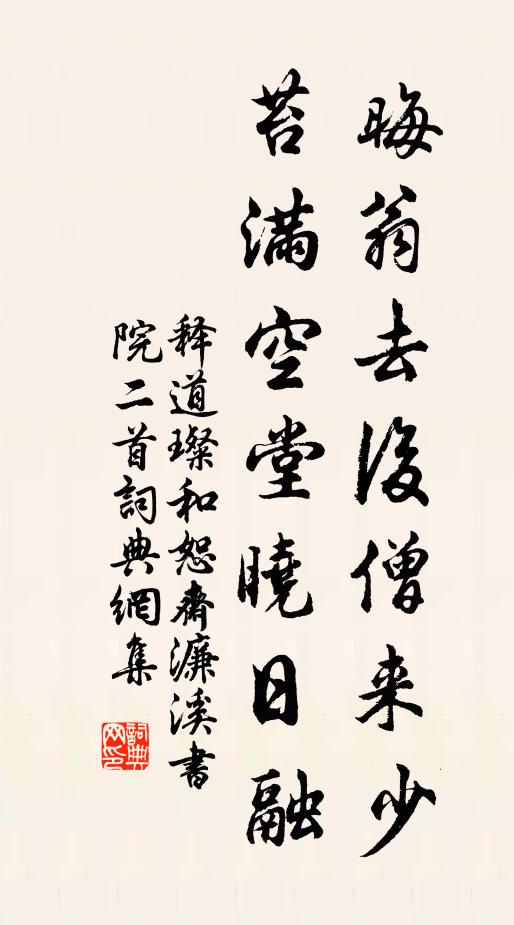 晦翁去後僧来少
苔滿空堂曉日融
释道璨和恕齋濂溪書
院二首詞典網集
詞典網印